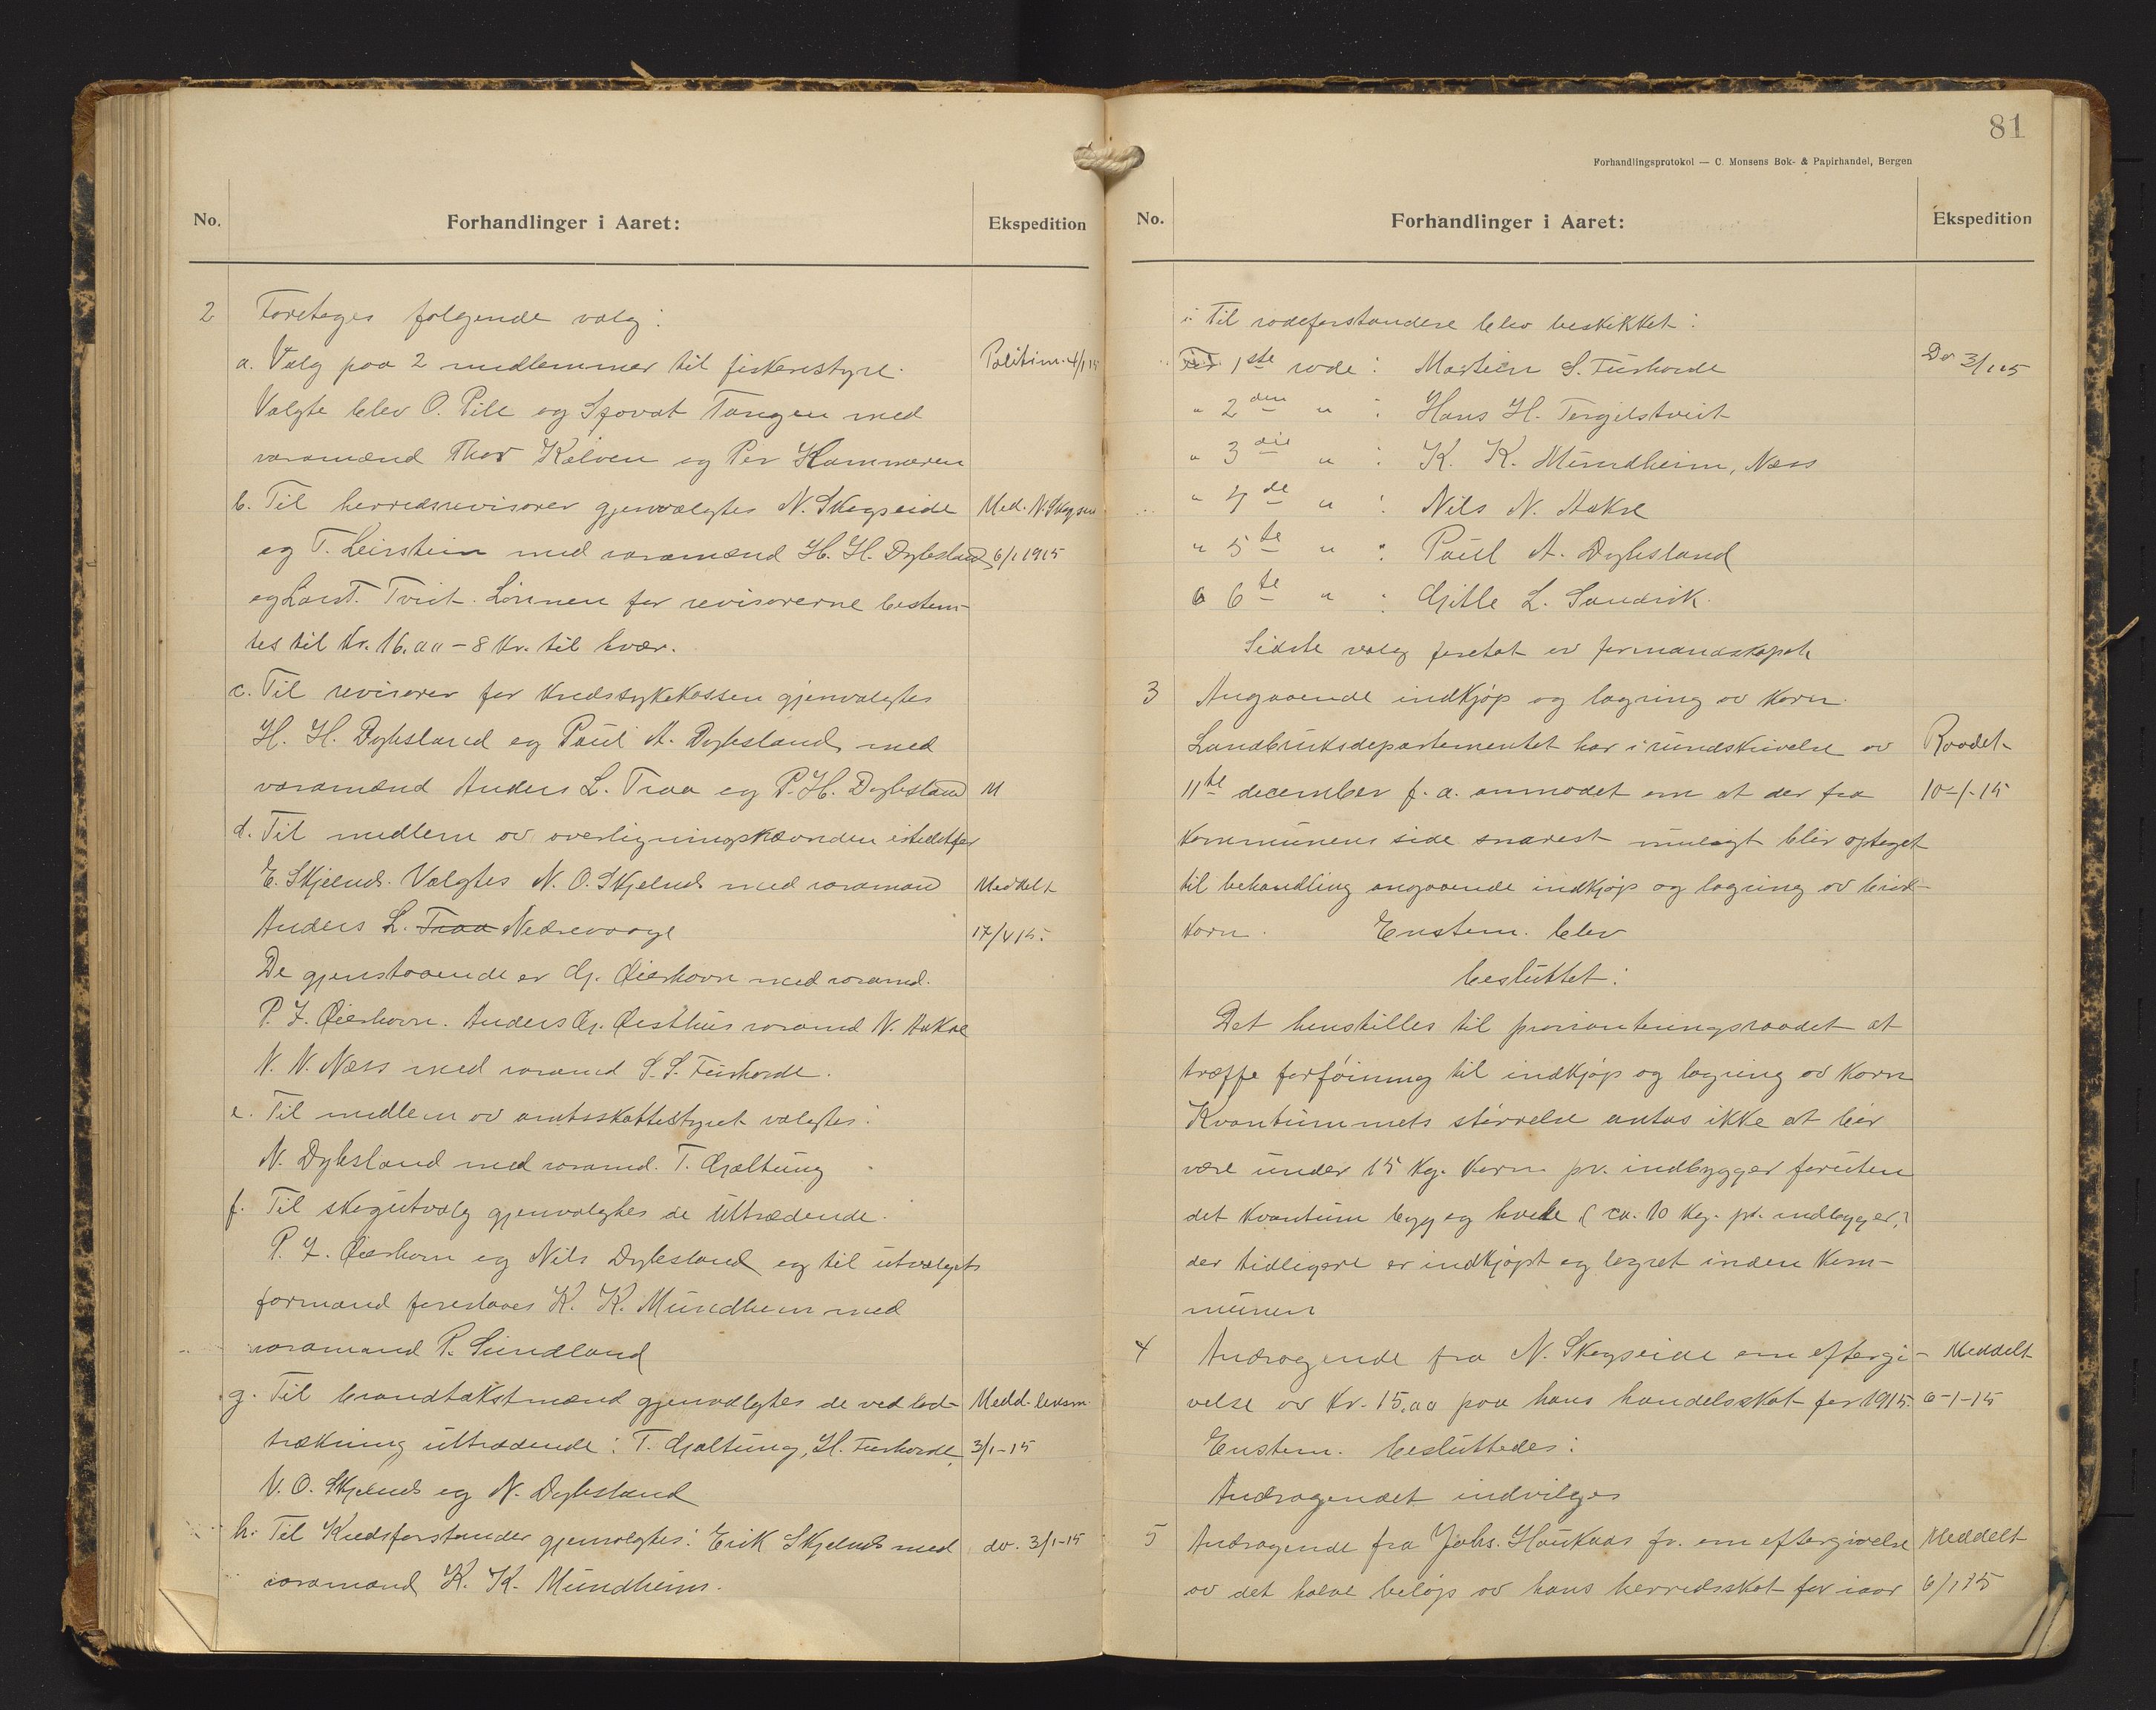 No. Forhandlinger i Aaret: Ekspedition
2 Foretoges følgende valg:
a. Valg paa 2 medlemmer til fiskerstyre. Politim. 4/1 15
Valgte blev O. Pile og Sjovat Tangen med
varamænd Thor Kalven og Per Hammeren
b. Til herredsrevisorer gjenvalgtes N. Skogseide Med. N. Skogsei
og T. Leirstein med varamænd H. H. Dybsland 6/1 1915
og Lars T. Tveit. Lønnen for revisorerne bestem-
tes til Kr. 16.00 – 8 Kr. til hver.
c. Til revisorer for Kredssykekassen gjenvalgtes
H. H. Dybsland og Paul A. Dybsland med
varamænd Anders L. Traa og P. H. Dybsland M
d. Til medlem av overligningsnævnden istedetfor
E. Skjelnes. Valgtes N. O. Skjelnes med varamand Meddelt
Anders L. Traa Nedrevaage 17/4 15.
De gjenstaaende er Gj. Øierhavn med varamd.
P. J. Øierhavn. Anders Gj. Østhus varamd N. Aakre
N. N. Næss med varamd S. S. Furhovde.
e. Til medlem av amtsskattestyret valgtes:
N. Dybsland med varamd. T. Gjæltung
f. Til skogutvalg gjenvalgtes de uttrædende.
P. J. Øierhavn og Nils Dybsland og til utvalgets
formand foreslaaes K. K. Mundheim med
varamand P. Sundland
g. Til brandtakstmænd gjenvalgtes de ved lod- Medd. lensm.
trækning uttrædende: T. Gjæltung, H. Furhovde, 3/1-15
N. O. Skjelnes og N. Dybsland
h. Til Kredsforstander gjenvalgtes: Erik Skjelnes med do. 3/1-15
varamand K. K. Mundheim.
81
Forhandlingsprotokol — C. Monsens Bok- & Papirhandel, Bergen
No. Forhandlinger i Aaret: Ekspedition
i. Til rodeforstandere blev beskikket:
Til 1ste rode: Martin S. Furhovde Do 3/1 15
" 2den " : Hans H. Torgilstveit
" 3die " : K. K. Mundheim, Næss
" 4de " : Nils N. Aakre
" 5te " : Paul A. Dybsland
" 6te " : Gitle L. Sandvik.
Sidste valg foretat av formandskapet
3 Angaaende indkjøp og lagring av korn.
Landbruksdepartementet har i rundskrivelse av Raadet
11te december f. a. anmodet om at der fra 10-1-15
kommunens side snarest muligt blir optaget
til behandling angaaende indkjøp og lagring av brød-
korn. Enstem. blev
besluttet:
Det henstilles til provianteringsraadet at
træffe forføining til indkjøp og lagring av korn
Kvantummets størrelse antas ikke at bør
være under 15 kg. korn pr. indbygger foruten
det kvantum bygg og hvete (ca. 10 kg. pr. indbygger,)
der tidligere er indkjøpt og lagret inden kom-
munen
4 Andragende fra N. Skogseide om eftergi- Meddelt
velse av Kr. 15.00 paa hans handelsskat for 1915. 6-1-15
Enstem. besluttedes:
Andragendet indvilges
5 Andragende fra Johs. Haukaas jr. om eftergivelse Meddelt
av det halve beløp av hans herredsskat for iaar 6/1 15